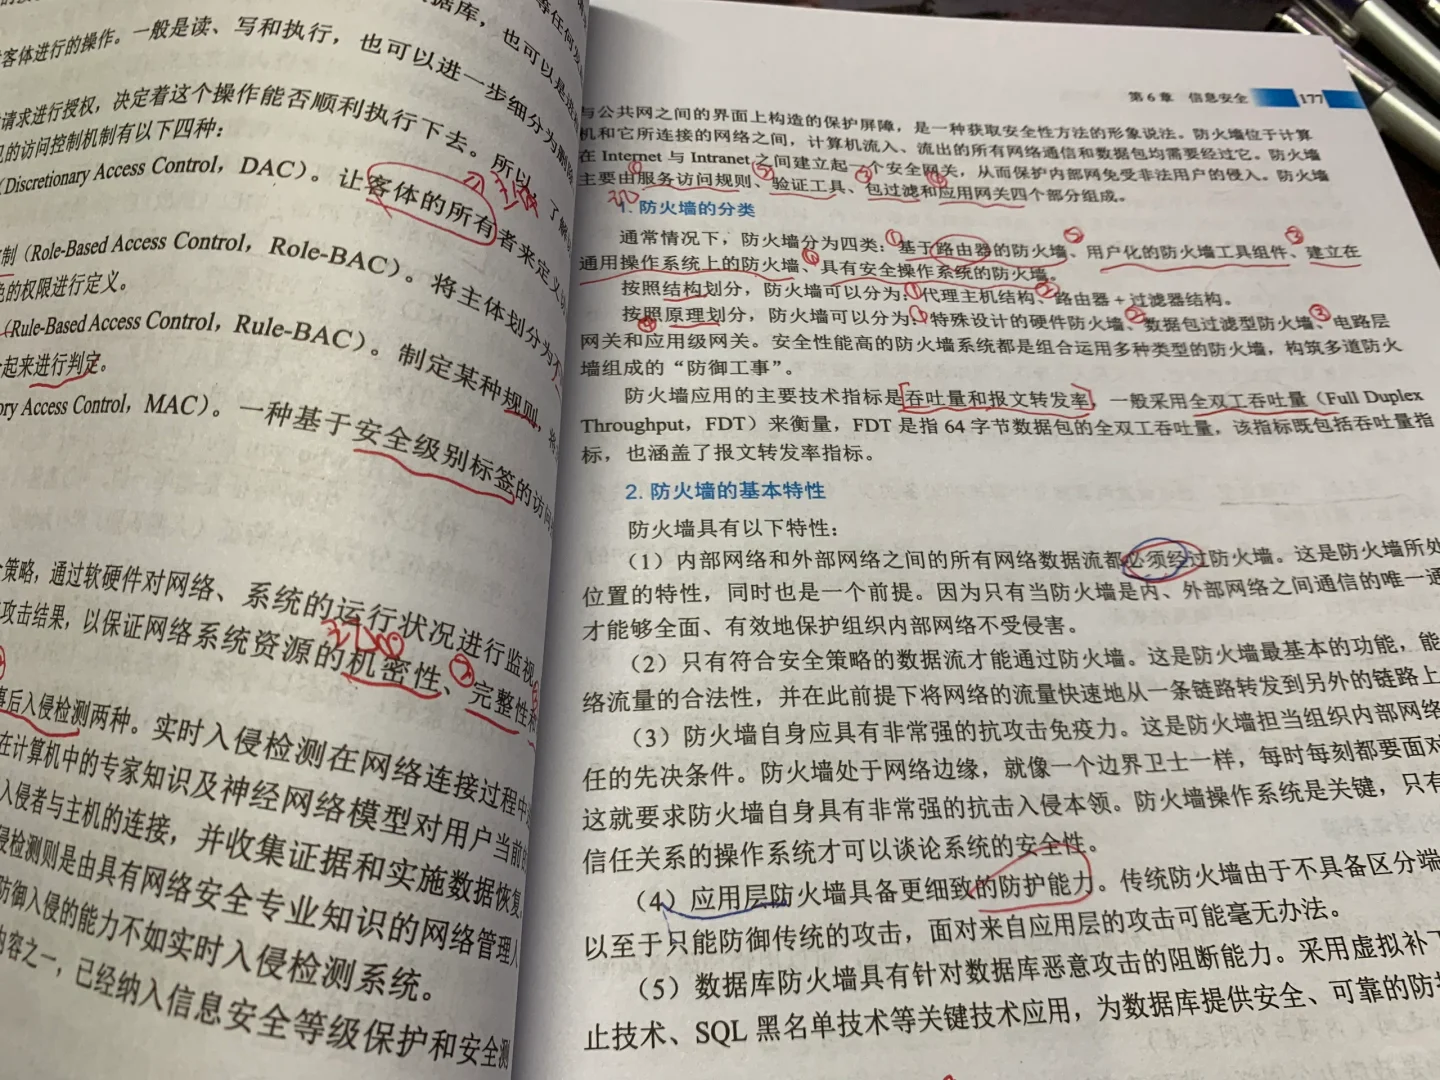 客体进行的操作。一般是读、写和执行，也可以进一步细分为删除
请求进行授权，决定着这个操作能否顺利执行下去。所以，了解
的访问控制机制有以下四种：
（Discretionary Access Control，DAC）。让客体的所有者来定义
制（Role-Based Access Control，Role-BAC）。将主体划分为不
的权限进行定义。
（Rule-Based Access Control，Rule-BAC）。制定某种规则，将
起来进行判定。
ory Access Control，MAC）。一种基于安全级别标签的访问
策略，通过软硬件对网络、系统的运行状况进行监视
攻击结果，以保证网络系统资源的机密性、完整性和
事后入侵检测两种。实时入侵检测在网络连接过程中
在计算机中的专家知识及神经网络模型对用户当前的
入侵者与主机的连接，并收集证据和实施数据恢复，
侵检测则是由具有网络安全专业知识的网络管理人
防御入侵的能力不如实时入侵检测系统。
内容之一，已经纳入信息安全等级保护和安全测
第 6 章 信息安全 177
与公共网之间的界面上构造的保护屏障，是一种获取安全性方法的形象说法。防火墙位于计算
机和它所连接的网络之间，计算机流入、流出的所有网络通信和数据包均需要经过它。防火墙
在 Internet 与 Intranet 之间建立起一个安全网关，从而保护内部网免受非法用户的侵入。防火墙
主要由服务访问规则、验证工具、包过滤和应用网关四个部分组成。
1. 防火墙的分类
通常情况下，防火墙分为四类：①基于路由器的防火墙、②用户化的防火墙工具组件、③建立在
通用操作系统上的防火墙、④具有安全操作系统的防火墙。
按照结构划分，防火墙可以分为：①代理主机结构、②路由器 + 过滤器结构。
按照原理划分，防火墙可以分为：①特殊设计的硬件防火墙、②数据包过滤型防火墙、③电路层
网关和④应用级网关。安全性能高的防火墙系统都是组合运用多种类型的防火墙，构筑多道防火
墙组成的“防御工事”。
防火墙应用的主要技术指标是吞吐量和报文转发率，一般采用全双工吞吐量（Full Duplex
Throughput，FDT）来衡量，FDT 是指 64 字节数据包的全双工吞吐量，该指标既包括吞吐量指
标，也涵盖了报文转发率指标。
2. 防火墙的基本特性
防火墙具有以下特性：
（1）内部网络和外部网络之间的所有网络数据流都必须经过防火墙。这是防火墙所处
位置的特性，同时也是一个前提。因为只有当防火墙是内、外部网络之间通信的唯一通
才能够全面、有效地保护组织内部网络不受侵害。
（2）只有符合安全策略的数据流才能通过防火墙。这是防火墙最基本的功能，能
络流量的合法性，并在此前提下将网络的流量快速地从一条链路转发到另外的链路上
（3）防火墙自身应具有非常强的抗攻击免疫力。这是防火墙担当组织内部网络
任的先决条件。防火墙处于网络边缘，就像一个边界卫士一样，每时每刻都要面对
这就要求防火墙自身具有非常强的抗击入侵本领。防火墙操作系统是关键，只有
信任关系的操作系统才可以谈论系统的安全性。
（4）应用层防火墙具备更细致的防护能力。传统防火墙由于不具备区分端
以至于只能防御传统的攻击，面对来自应用层的攻击可能毫无办法。
（5）数据库防火墙具有针对数据库恶意攻击的阻断能力。采用虚拟补丁
止技术、SQL 黑名单技术等关键技术应用，为数据库提供安全、可靠的防护